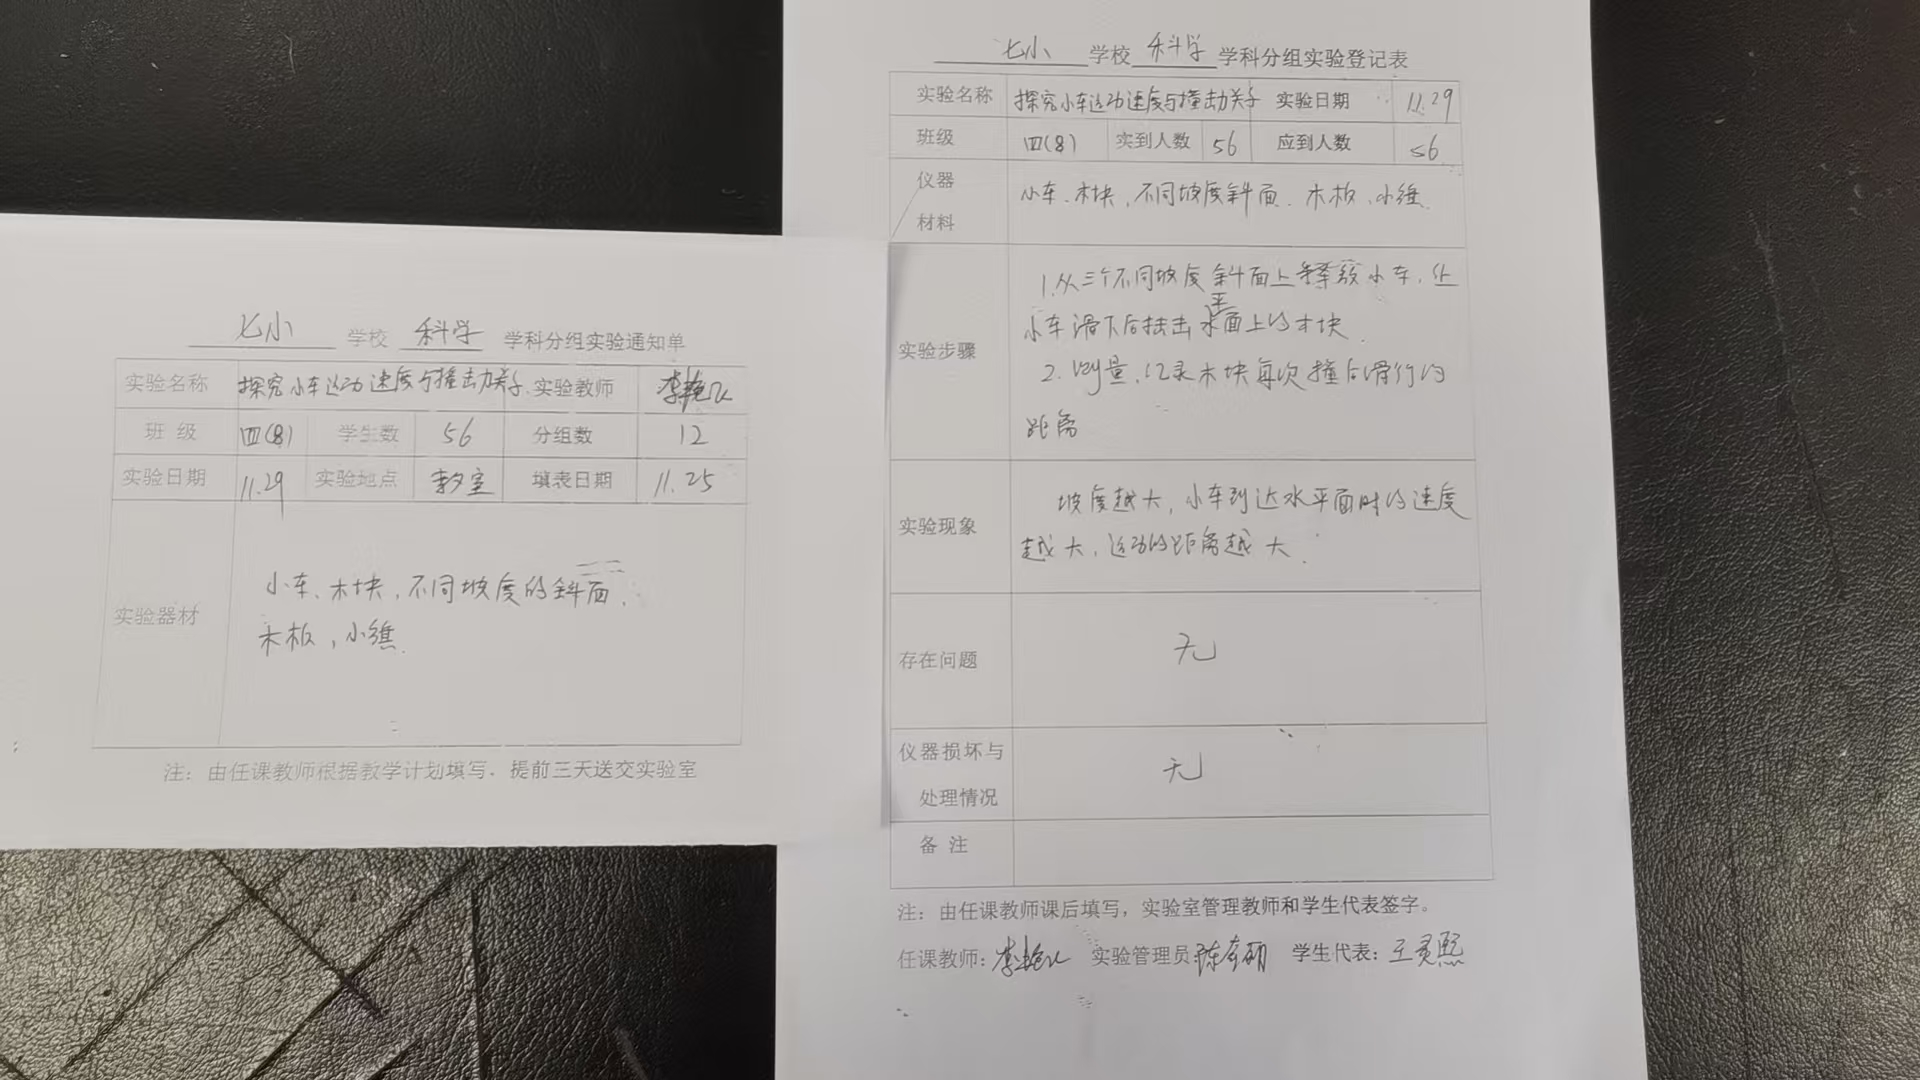 七小 学校 科学 学科分组实验通知单
实验名称 探究小车运动速度与撞击力关系 实验教师
班 级 四(8) 学生数 56 分组数 12
实验日期 11.29 实验地点 教室 填表日期 11.25
实验器材
小车、木块，不同坡度的斜面．
木板，小缠．
注：由任课教师根据教学计划填写．提前三天送交实验室
七小 学校 科学 学科分组实验登记表
实验名称 探究小车运动速度与撞击力关系 实验日期 11.29
班级 四(8) 实到人数 56 应到人数 56
仪器
材料
小车、木块，不同坡度斜面．木板、小缠．
实验步骤
1.从三个不同坡度斜面上释放小车，让
小车滑下后撞击水平面上的木块．
2.测量，记录木块每次撞后滑行的
距离
实验现象
坡度越大，小车到达水平面时的速度
越大，运动的距离越大．
存在问题 无
仪器损坏与
处理情况
无
备 注
注：由任课教师课后填写，实验室管理教师和学生代表签字。
任课教师： 实验管理员： 学生代表：